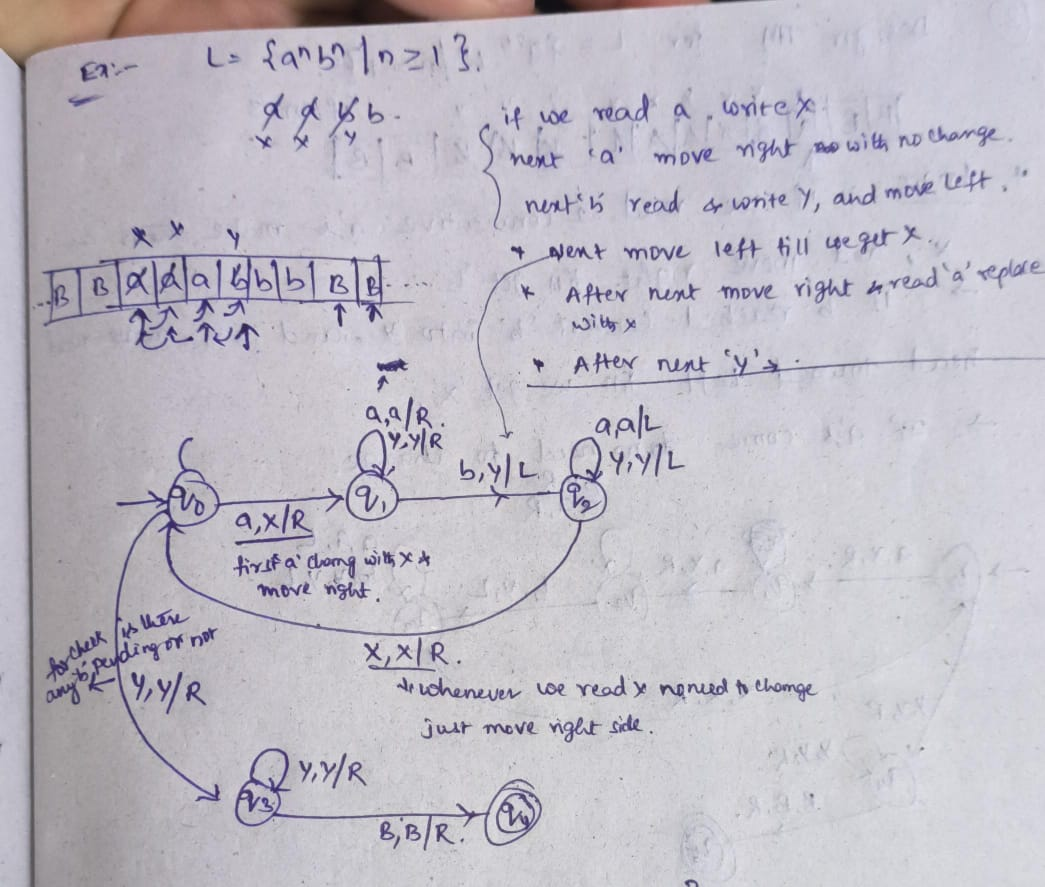 Ex:-
L = {aⁿbⁿ | n ≥ 1}.
a a b b.
x x y
if we read a, write x
next 'a' move right with no change.
next 'b' read & write Y, and move left.
* Next move left till we get x.
* After next move right & read 'a' replace
with x
* After next 'y'
x x y
...B B a a a b b b B B ....
a,a/R.
Y,Y/R
a,a/L
Y,Y/L
b,y/L
q0 q1 q2
a,X/R
first 'a' chang with x &
move right.
X,X/R.
whenever we read x no need to change
just move right side.
for check is there
any 'b' pending or not
Y,Y/R
Y,Y/R
q3 q4
B,B/R.